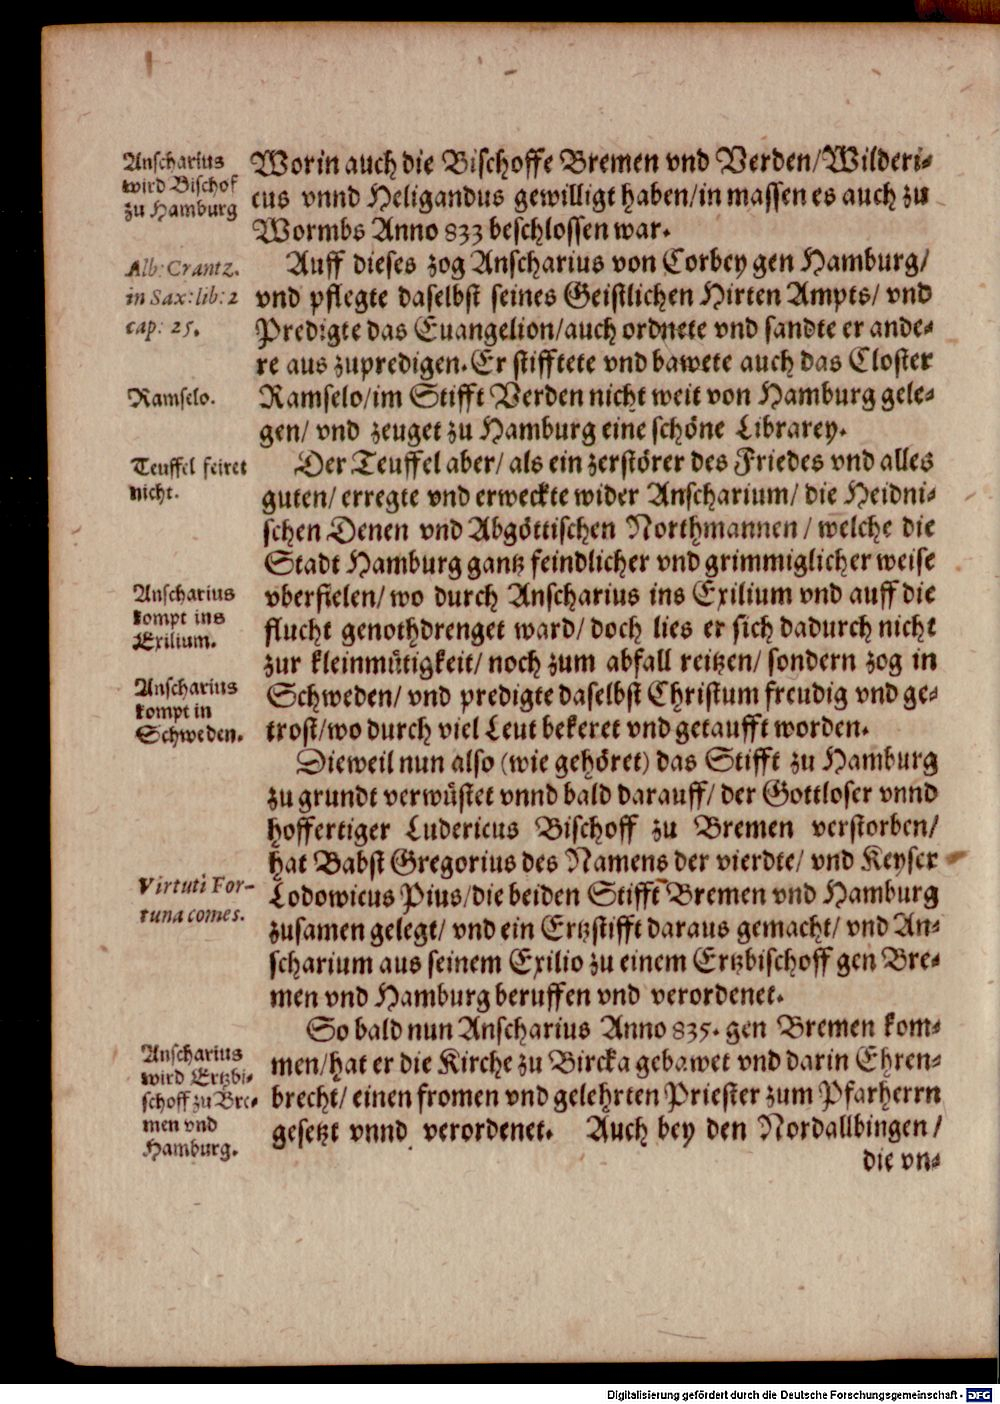 Anscharius
wird Bischof
zu Hamburg
Worin auch die Bischoffe Bremen vnd Verden/Wilderi-
cus vnnd Heligandus gewilligt haben/in massen es auch zu
Wormbs Anno 833 beschlossen war.
Alb: Crantz.
in Sax: lib: 2
cap: 25.
Auff dieses zog Anscharius von Corbey gen Hamburg/
vnd pflegte daselbst seines Geistlichen Hirten Ampts/ vnd
Predigte das Euangelion/auch ordnete vnd sandte er ande-
re aus zupredigen. Er stifftete vnd bawete auch das Closter
Ramselo.
Ramselo/im Stifft Verden nicht weit von Hamburg gele-
gen/ vnd zeuget zu Hamburg eine schöne Librarey.
Teuffel feiret
nicht.
Der Teuffel aber/ als ein zerstörer des Friedes vnd alles
guten/ erregte vnd erweckte wider Anscharium/ die Heidni-
schen Denen vnd Abgöttischen Northmannen/ welche die
Stadt Hamburg gantz feindlicher vnd grimmiglicher weise
Anscharius
kompt ins
Exilium.
vberfielen/ wo durch Anscharius ins Exilium vnd auff die
flucht genothdrenget ward/ doch lies er sich dadurch nicht
zur kleinmütigkeit/ noch zum abfall reitzen/ sondern zog in
Anscharius
kompt in
Schweden.
Schweden/ vnd predigte daselbst Christum freudig vnd ge-
trost/wo durch viel Leut bekeret vnd getaufft worden.
Dieweil nun also (wie gehöret) das Stifft zu Hamburg
zu grundt verwüstet vnnd bald darauff/ der Gottloser vnnd
hoffertiger Ludericus Bischoff zu Bremen verstorben/
hat Babst Gregorius des Namens der vierdte/ vnd Keyser
Virtuti For-
tuna comes.
Lodowicus Pius/die beiden Stifft Bremen vnd Hamburg
zusamen gelegt/ vnd ein Ertzstifft daraus gemacht/ vnd An-
scharium aus seinem Exilio zu einem Ertzbischoff gen Bre-
men vnd Hamburg beruffen vnd verordenet.
So bald nun Anscharius Anno 835. gen Bremen kom-
Anscharius
wird Ertzbi-
schoff zu Bre-
men vnd
Hamburg.
men/hat er die Kirche zu Bircka gebawet vnd darin Ehren-
brecht/ einen fromen vnd gelehrten Priester zum Pfarherrn
gesetzt vnnd verordenet. Auch bey den Nordallbingen/
die vn-
Digitalisierung gefördert durch die Deutsche Forschungsgemeinschaft - DFG